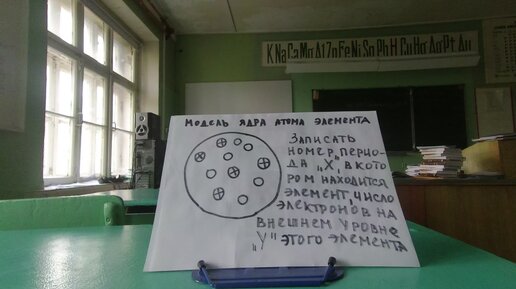 K Na Ca Mg Al Zn Fe Ni Sn Pb H Cu Hg Ag Pt Au
МОДЕЛЬ ЯДРА АТОМА ЭЛЕМЕНТА
ЗАПИСАТЬ
НОМЕР ПЕРИО-
ДА „X", В КОТО
РОМ НАХОДИТСЯ
ЭЛЕМЕНТ, ЧИСЛО
ЭЛЕКТРОНОВ НА
ВНЕШНЕМ УРОВНЕ
„У" ЭТОГО ЭЛЕМЕНТА